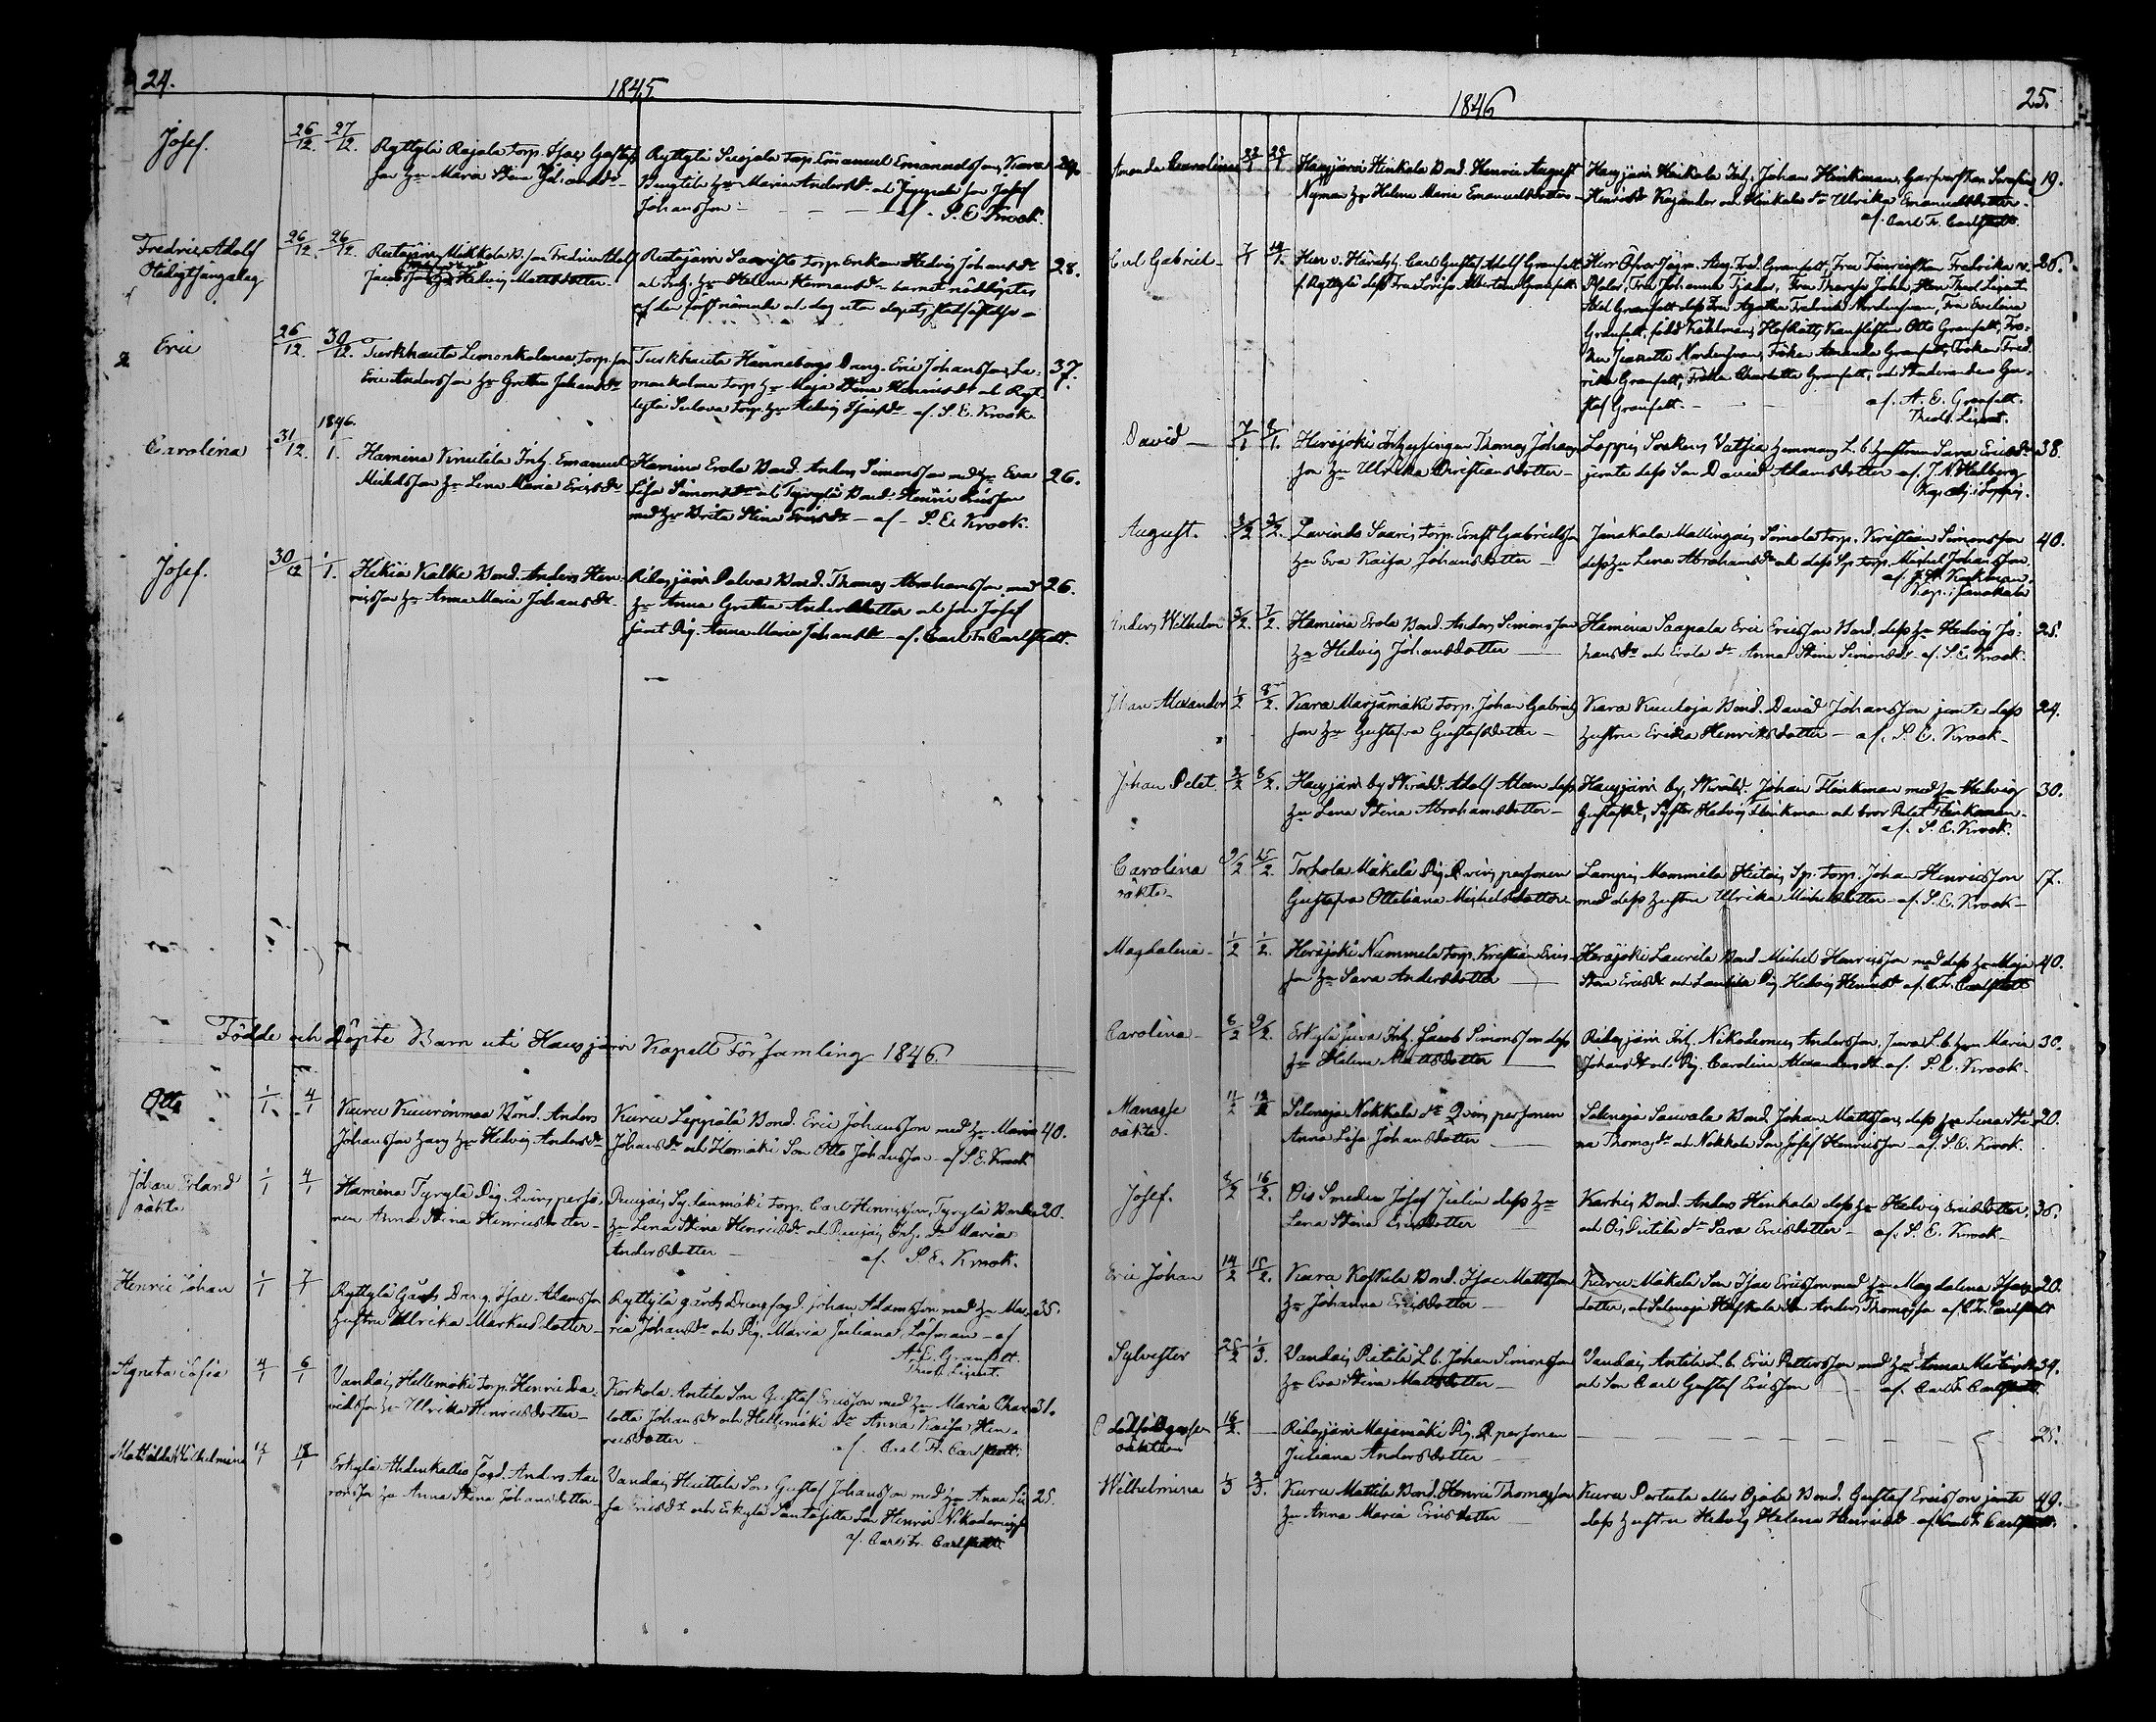 24.
1845
Josef.
26/12. 27/12.
Ryttylä Rajala torp. Isac Gustafs
son hu Maria Stina Joh.ansdr
Ryttylä Suojala torp Emanuel Emanuelsson, Kara
Bengtila hu Maria Andersdr och Son Josef
Johansson
af. S. E. Krook.
29.
Fredric Adolf
26/12. 26/12.
Mikkola B. son Fredric Adolf
Jacobsson hu Hedvig Mattsdotter
torp. Enkan Hedvig Johansdr
och Inh. hu Helena Hermansdr barnet nöddöptes
28.
Eric
26/12. 30/12.
Turkhauta Limonkolmaa torp. son
Eric Andersson hu Gretha Johansdr
Turkhauta Hanneborgs Dräng. Eric Johansson, Li=
monkolmaa torp. hu Maja Stina Henricsdr och Ryt
tylä torp. hu Hedvig Isacsdr af. S. E. Krook.
37.
Carolina
1846.
31/12. 1/1.
Hamina Knutila Inh. Emanuel
Michelsson hu Lena Maria Ericsdr
Hamina Erola Bond. Anders Simonsson med hu Eva
Lisa Simonsdr och Tyrylä Bond. Henric Ericsson
med hu Brita Stina Ericsdr af S. E. Krook.
26.
Josef.
30/12 1/1.
Hikiä Kalke Bond. Anders Hen=
ricsson hu Anna Maria Johansdr.
Ridasjärvi Palva Bond. Thomas Abrahamsson med
hu Anna Gretha Andersdotter och son Josef
samt Pig. Anna Maria Johansdr af. Carl Fr. Carlstedt.
26.
Födde och Döpte Barn uti Hausjärvi Kapell Församling 1846
Otto
1/1 4/1
Kuru Kuurönmaa Bond. Anders
Johansson hans hu Hedvig Andersdr
Kuru Leppälä Bond. Eric Johansson med hu Maria
Johansdr och Homäki Son Otto Johansson af S. E. Krook
40.
Johan Erland
oäkta
1/1 4/1
Hamina Tyrylä Pig. Qvinspersö=
nen Anna Stina Henricsdotter
torp. Carl Henricsson, Tyrylä Bond.
hu Lena Stina Henricsdr och Inh. dr Maria
Andersdotter
af. S. E. Krook.
20.
Henric Johan
1/1 7/1
Ryttylä Gårds Dräng. Isac Adamsson
hustru Ulrika Markusdotter
Ryttylä gårds Drängfogd. Johan Adamsson med hu Ma=
ria Johansdr och Pig. Maria Juliana Löfman af
A. E. Granfelt.
Theol. Licent.
35.
Agneta Sofia
4/1 6/1
Vandais Hellemäki torp. Henric Da=
vidsson hu Ulrika Henricsdotter
Korkola Antila Son Gustaf Ericsson med hu Maria Char=
lotta Johansdr och Hellemäki dr Anna Kaisa Hen=
ricsdotter
af. Carl Fr. Carlstedt.
31.
Mathilda Wilhelmina
14/1 18/1
Erkylä Ahdenkallio fogd. Anders Aa=
ronsson hu Anna Stina Johansdotter
Vandais Huttila Son Gustaf Johansson med hu Anna Li=
sa Ericsdr och Erkylä Son Henric Nikodemusson
af. Carl Fr. Carlstedt.
25.
1846
25.
Amanda Carolina
Hausjärvi Hinkala Bond. Henric August
Nyman hu Helena Maria Emanuelsdotter
Hausjärvi Hinkala Inh. Johan Hinkman, Garfvarskan Serafina
Henricsdr Kajander och Hinkala dr Ulrika Emanuelsdotter
af. Carl Fr. Carlstedt.
19.
Carl Gabriel
7/1 14/1.
Herr v. Häradsh. Carl Gustaf Adolf Granfelt
f. Ryttylä dess Fru Lovisa Albertina Granfelt.
Herr Öfver Jägm. Aug. Fred. Granfelt, Fru Fredrika v.
Pfaler, Fru Johanna Tjäder, Herr Theol. Licent.
Axel Granfelt dess Fru Agatha Fredrica Nordensvan, Fru Evelina
Granfelt född Kählman, Hofrätts Kanslisten Otto Granfelt, Frö=
ken Jeanette Nordensvan, Fröken Amanda Granfelt, Fröken Fred
rika Granfelt, Fröken Charlotta Granfelt, och Studeranden Gu=
staf Granfelt.
af. A. E. Granfelt.
Theol. Licent.
26.
David
7/1 8/1.
Herajoki Inhysingen Thomas Johans
son hu Ulrika Christiansdotter
Loppis Socken, Vatsia hemman L. b. hustrun Sara Ericsdr
jemte dess Son David Adamsdotter af. J. N. Helberg
Kap. adj. i Loppis.
38.
August.
3/2 3/2.
Lavinda Saaris torp. Ernst Gabrielsson
hu Eva Kaisa Johansdotter
Janakala Mallinkais Simola torp. Kristian Simonsson
dess hu Lena Abrahamsdr och dess Sp. torp. Michel Johansson
Kap. i Janakala
40.
Anders Wilhelm
5/2. 7/2.
Hamina Erola Bond. Anders Simonsson
hu Hedvig Johansdotter
Hamina Saapala Eric Ericsson Bond. dess hu Hedvig Jo=
hansdr och Erola dr Anna Stina Simonsdr. af. S. E. Krook.
25.
Johan Alexander
1/2 8/2.
Kara Marjämäki torp. Johan Gabriels
son hu Gustafva Gustafsdotter
Kara Kuuloja Bond. David Johansson jemte dess
hustru Erika Henriksdotter af. S. E. Krook
24.
Johan Delet.
3/2 8/2.
Hausjärvi by Skrädd. Adolf Alcen dess
hu Lena Stina Abrahamsdotter
Hausjärvi by, Skrädd. Johan Flinkman med hu Hedvig
Gustafsdr, Syster Hedvig Flinkman och bror Delet Flinkman
af. S. E. Krook.
30.
Carolina
oäkta
9/2 15/2.
Torhola Mäkelä Pig. Qvinspersonen
Gustafva Ottiliana Michelsdotter
Lampis, Mommila Hietois Sp. torp. Johan Henricsson
med dess hustru Ulrika Michelsdotter af. S. E. Krook
17.
Magdalena
1/2 1/2.
Herajoki Nummela torp. Kristian Erics
son hu Sara Andersdotter
Herajoki Laurila Bond. Michel Henricsson med dess hu Maja
Stina Ericsdr. och Laurila Pig. Hedvig Henricsdr af. C. Fr. Carlstedt
40.
Carolina
8/2 9/2.
Erkylä Juva Inh. Jacob Simonsson dess
hu Helena Mattsdotter
Ridasjärvi Inh. Nikodemus Andersson, Juva L. b. hu Maria
Johansdr och Pig. Carolina Alexandersdr. af. S. E. Krook
30.
Manasse
oäkta.
11/2 12/2
Selänoja Nokkala dr Qvinspersonen
Anna Lisa Johansdotter
Selänoja Sauvala Bond. Johan Mattsson, dess hu Lena Sti
na Thomasdr och Nokkala Son Josef Henricsson af. S. E. Krook.
20.
Josef.
8/2 16/2.
Ois Smeden Josef Julin dess hu
Lena Stina Ericsdotter
Karhis Bond. Anders Hinkala dess hu Hedvig Ericsdotter
och Ois Pietila dr Sara Ericsdotter af. S. E. Krook
36.
Eric Johan
14/2 15/2.
Kara Koskela Bond. Isac Mattsson
hu Johanna Ericsdotter
Kuru Mäkelä Son Isac Ericsson med hu Magdalena Isacs
dotter, och Selänoja Son Anders Thomasson af C. Fr. Carlstedt
20.
Sylvester
28/2 1/3.
Vandais Pietilä L. b. Johan Simonsson
hu Eva Stina Mattsdotter
Vandais Antila L. b. Eric Pettersson med hu Anna Mattsdr
och Son Carl Gustaf Ericsson af. Carl Fr. Carlstedt.
39.
dödfödd gosse
oäkta
16/2.
Ridasjärvi Majamäki Pig. Q. personen
Juliana Andersdotter
25.
Wilhelmina
1/3 3/3.
Kuru Mattila Bond. Henric Thomasson
hu Anna Maria Ericsdotter
Kuru Perttula eller Ojala Bond. Gustaf Ericsson jemte
dess hustru Hedvig Helena Henricsdr af Carl Fr. Carlstedt.
49.